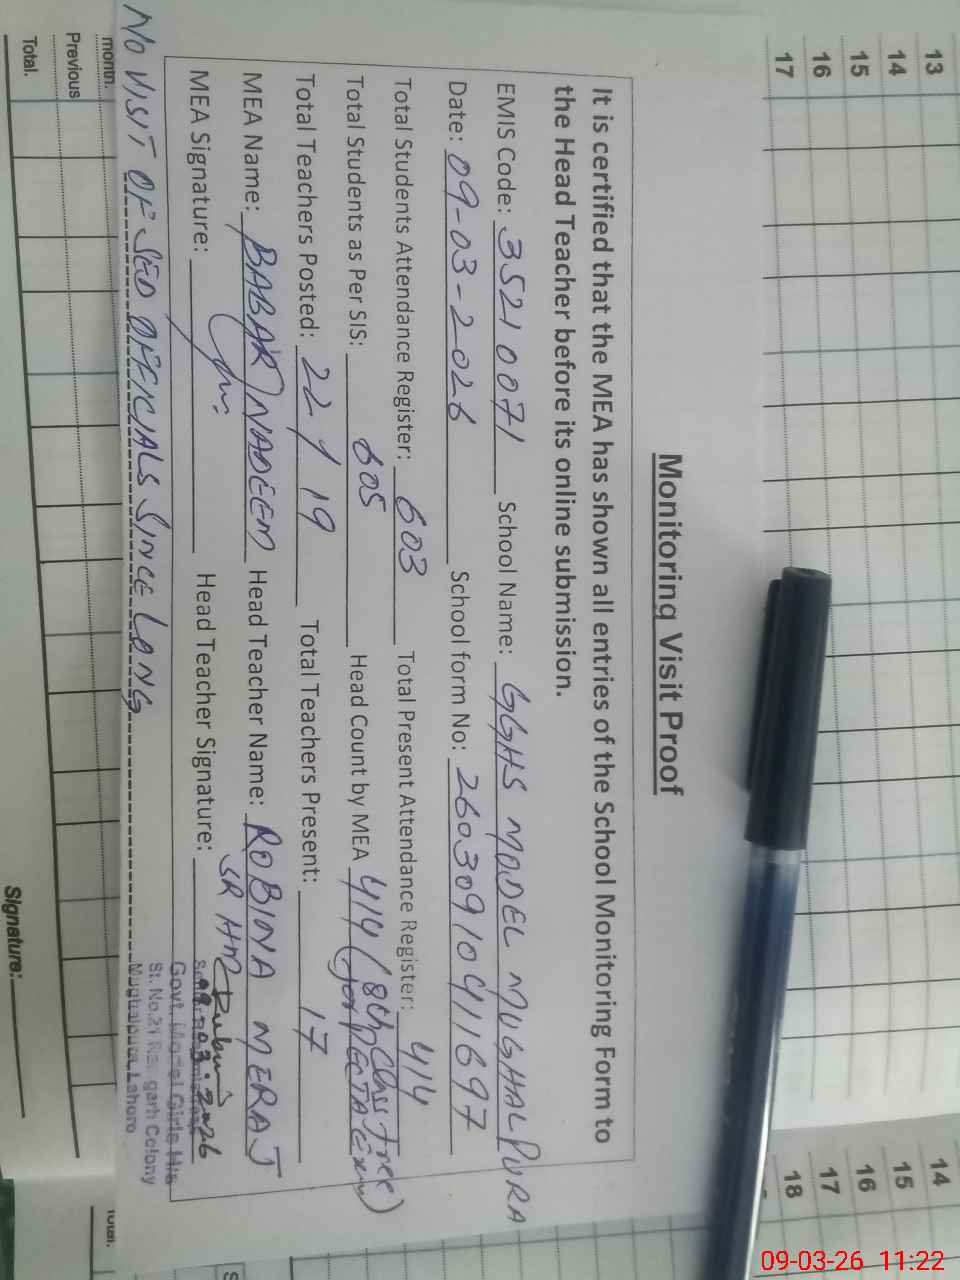 Monitoring Visit Proof
It is certified that the MEA has shown all entries of the School Monitoring Form to
the Head Teacher before its online submission.
EMIS Code: 35210071 School Name: GGHS MODEL MUGHALPURA
Date: 09-03-2026 School form No: 260309104111697
Total Students Attendance Register: 603 Total Present Attendance Register: 414
Total Students as Per SIS: 605 Head Count by MEA 414 (8th Class Free) for PECTA Exam
Total Teachers Posted: 22 / 19 Total Teachers Present: 17
MEA Name: BABAR NADEEM Head Teacher Name: ROBINA MERAJ
SR HM
MEA Signature: Head Teacher Signature:
09.03.2026
Govt. Model Girls
St. No.21 garh Colony
Mughalpura, Lahore
NO VISIT OF SED OFFICIALS SINCE LONG
13
14
15
16
17
14
15
16
17
18
month.
Previous
Total.
Total.
Signature:
09-03-26 11:22